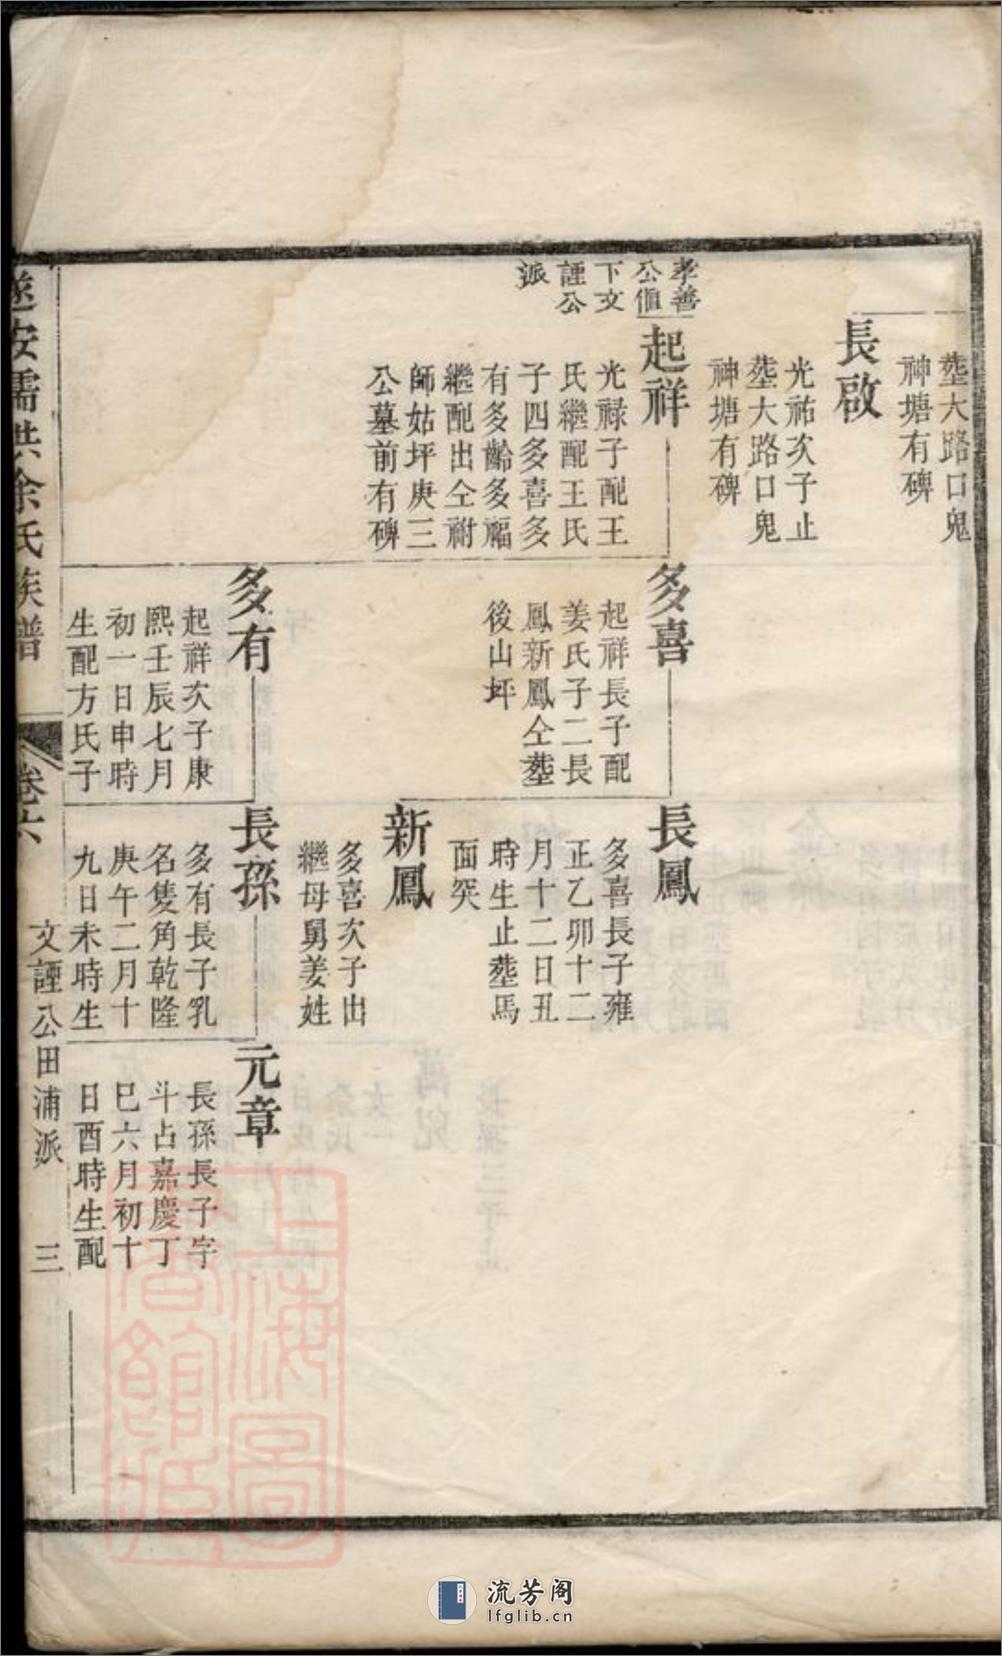 塟大路口鬼
神塘有碑
長啟
光祐次子止
塟大路口鬼
神塘有碑
孝善
公値
下文
諲公
派
起祥
光祿子配王
氏繼配王氏
子四多喜多
有多齡多福
繼配出仝祔
師姑坪庚三
公墓前有碑
多喜
起祥長子配
姜氏子二長
鳳新鳳仝塟
後山坪
多有
起祥次子康
熙壬辰七月
初一日申時
生配方氏子
長鳳
多喜長子雍
正乙卯十二
月十二日丑
時生止塟馬
面突
新鳳
多喜次子出
繼母舅姜姓
長孫
多有長子乳
名隻角乾隆
庚午二月十
九日未時生
元章
長孫長子字
斗占嘉慶丁
巳六月初十
日酉時生配
遂安儒洪余氏族譜
卷六
文諲公田浦派
三
上海圖書館藏
流芳阁
lfglib.cn